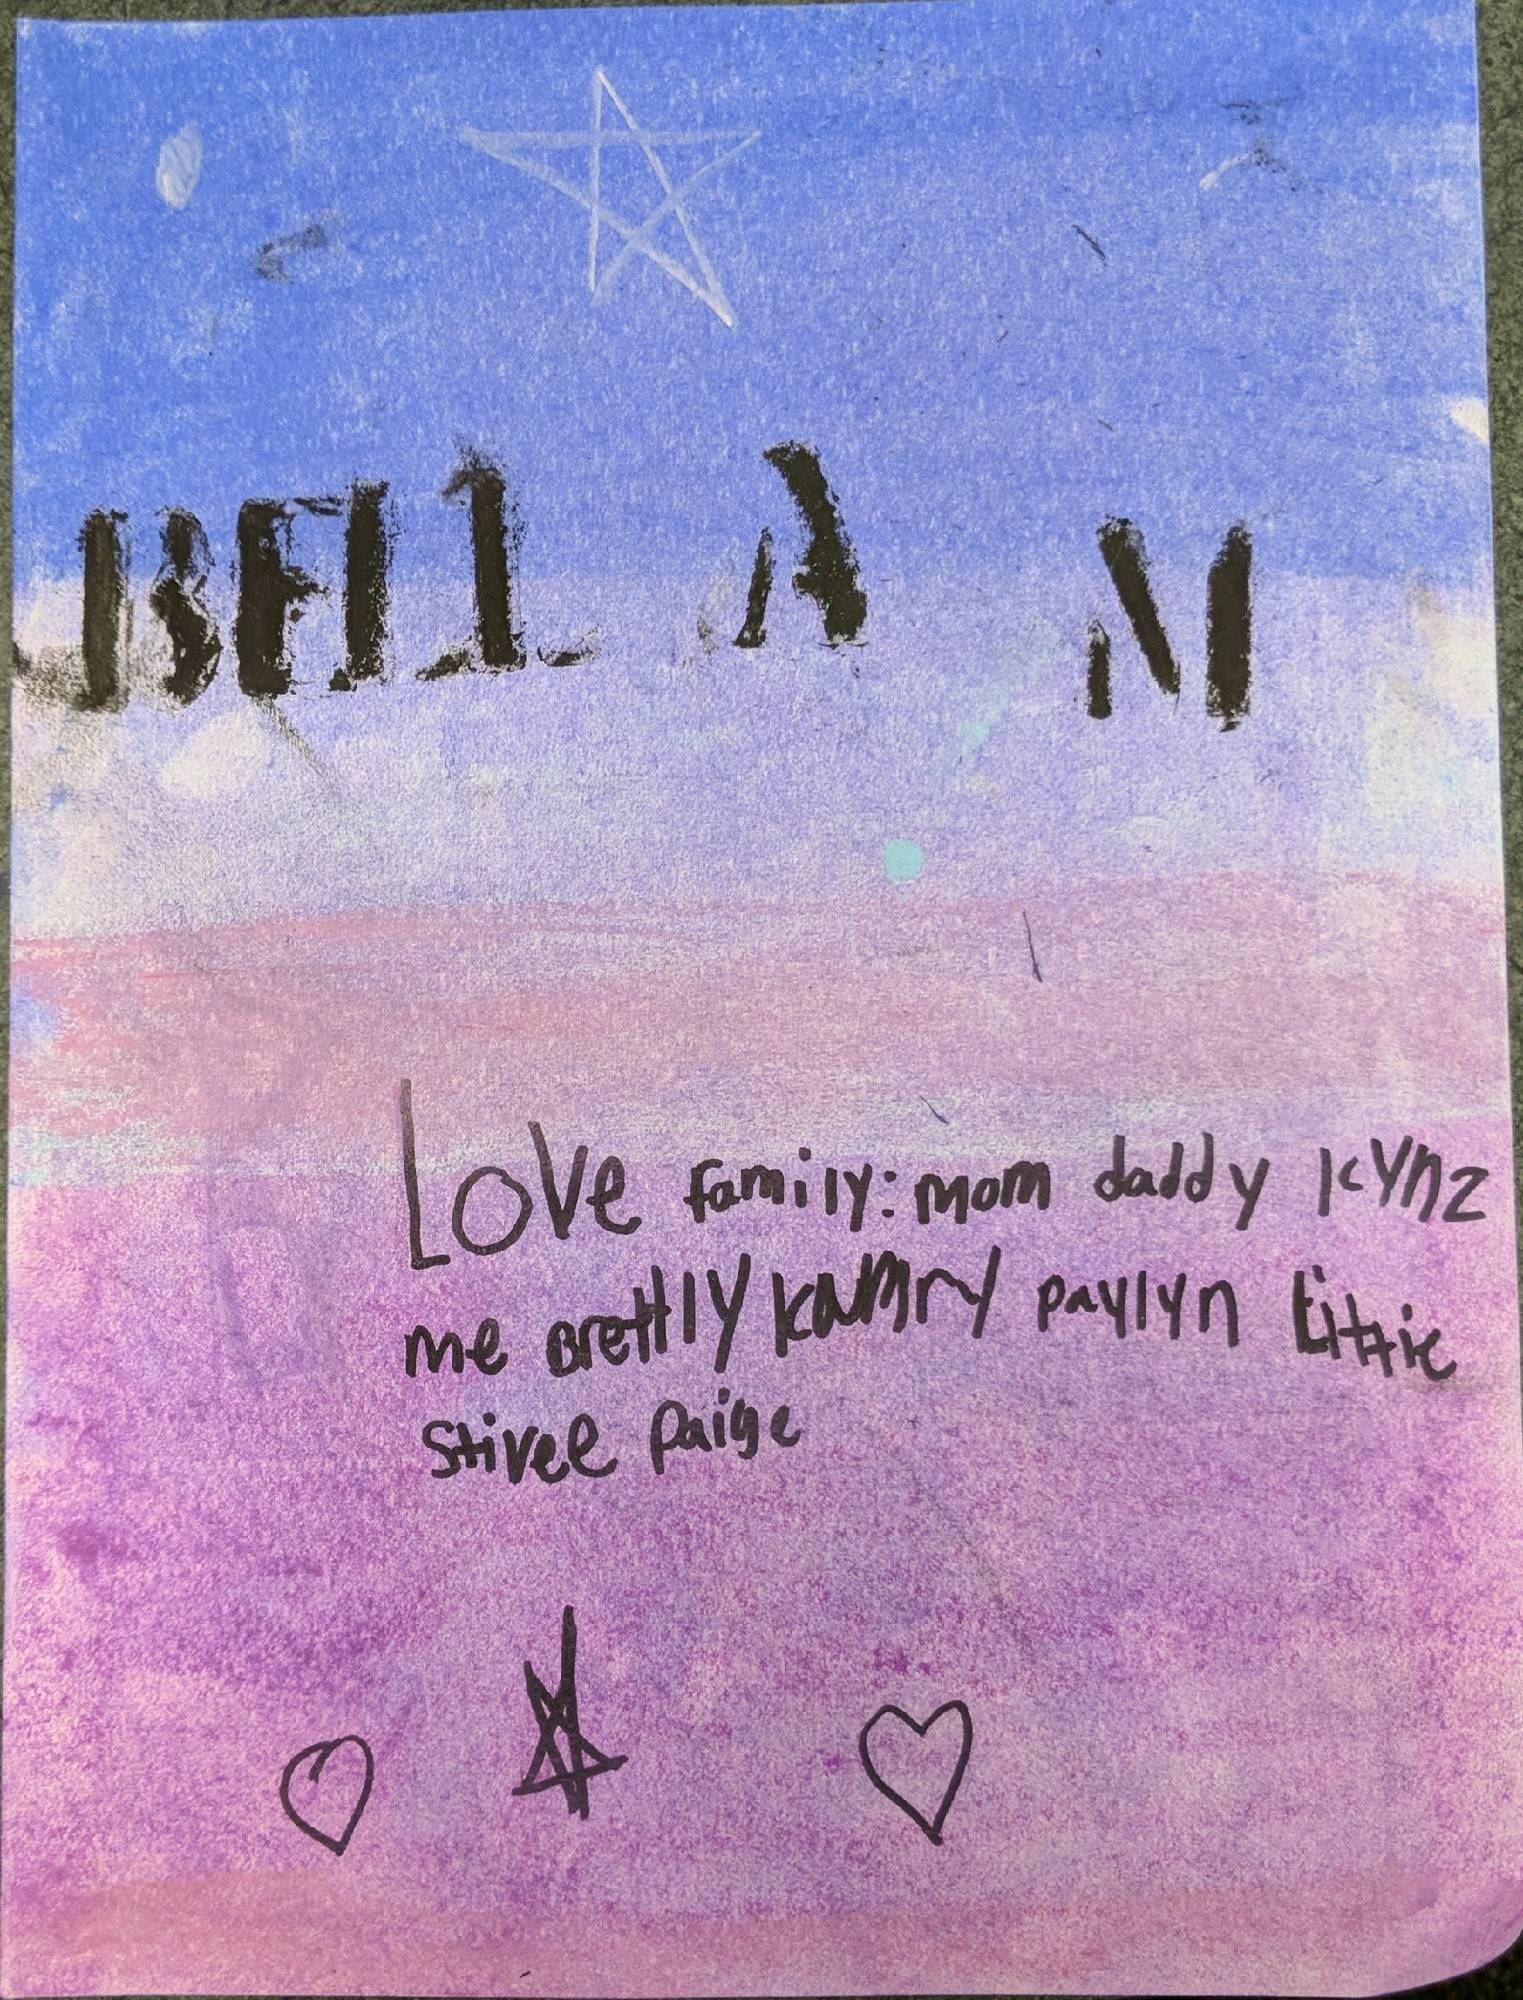 BELLA M
Love family: mom daddy kynz
me brettly kamry paylyn Little
Stivee paige